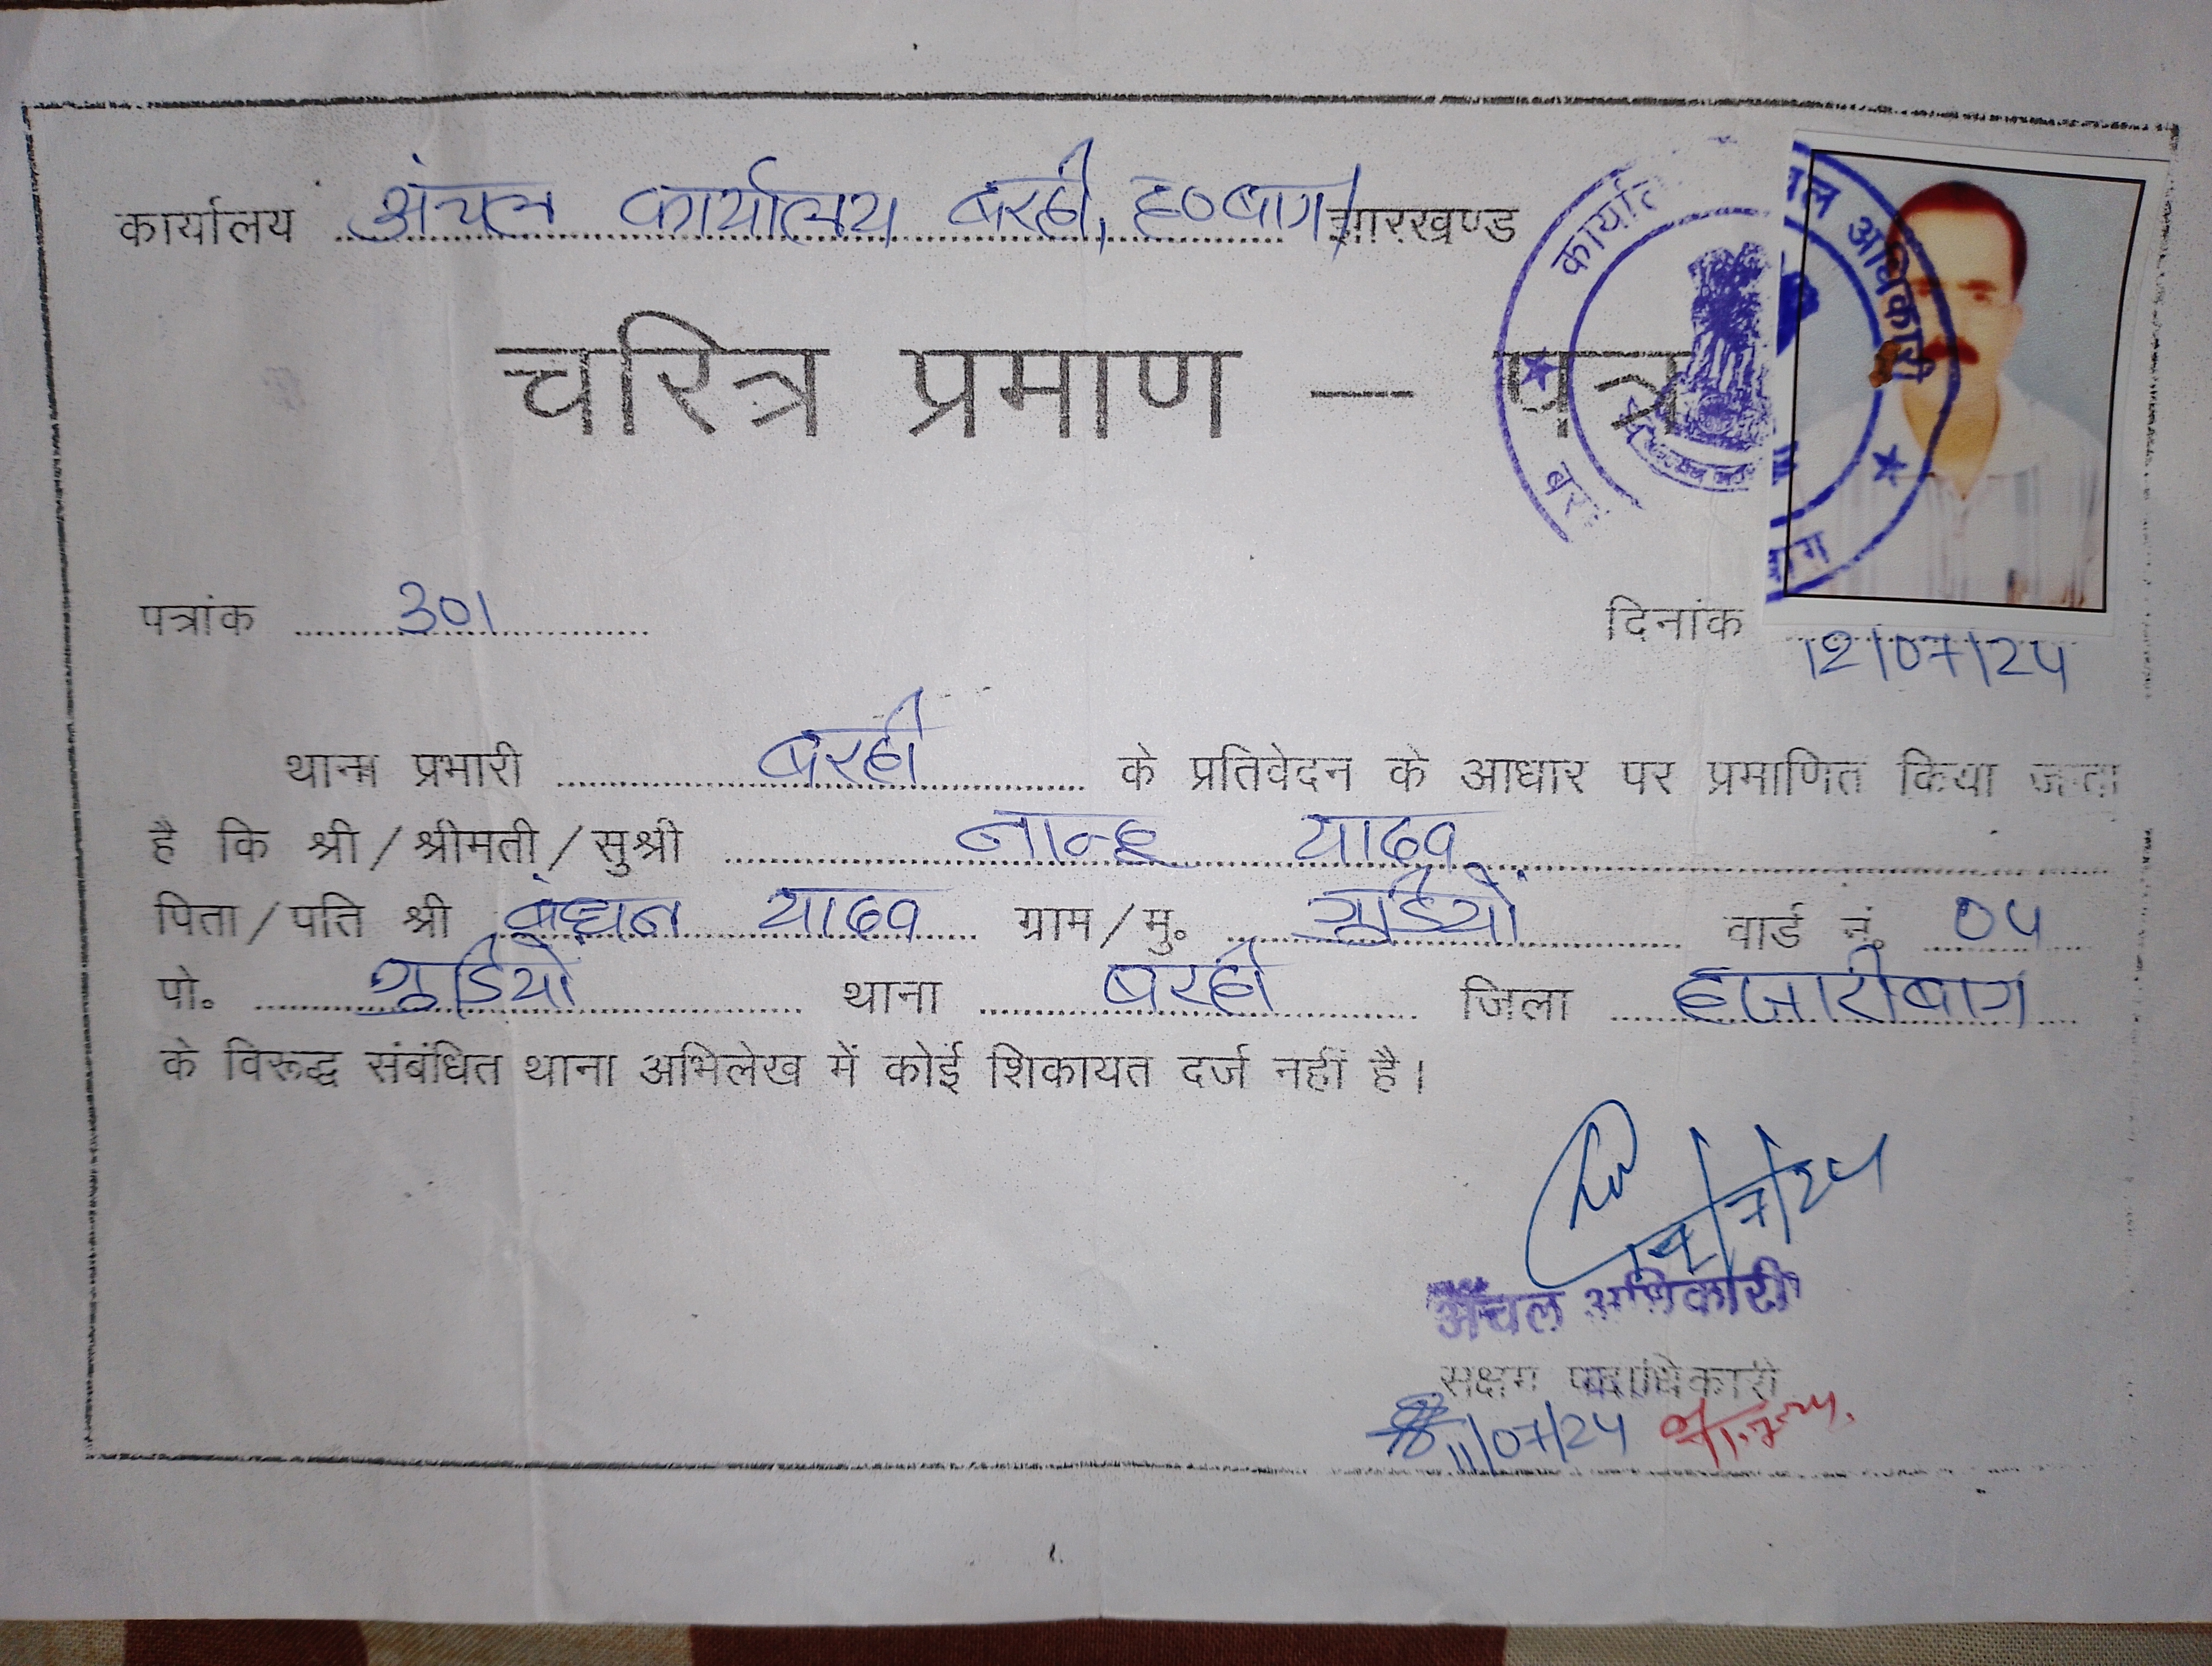 कार्यालय अंचल कार्यालय बरही, ह०बाग झारखण्ड
चरित्र प्रमाण — पत्र
पत्रांक 301
दिनांक 12/07/24
थाना प्रभारी बरही के प्रतिवेदन के आधार पर प्रमाणित किया जाता
है कि श्री/श्रीमती/सुश्री नान्हु यादव
पिता/पति श्री बंधन यादव ग्राम/मु० वार्ड नं. 04
पो० थाना बरही जिला हजारीबाग
के विरूद्ध संबंधित थाना अभिलेख में कोई शिकायत दर्ज नहीं है।
12/7/24
अंचल अधिकारी
सक्षम पदाधिकारी
11/07/24